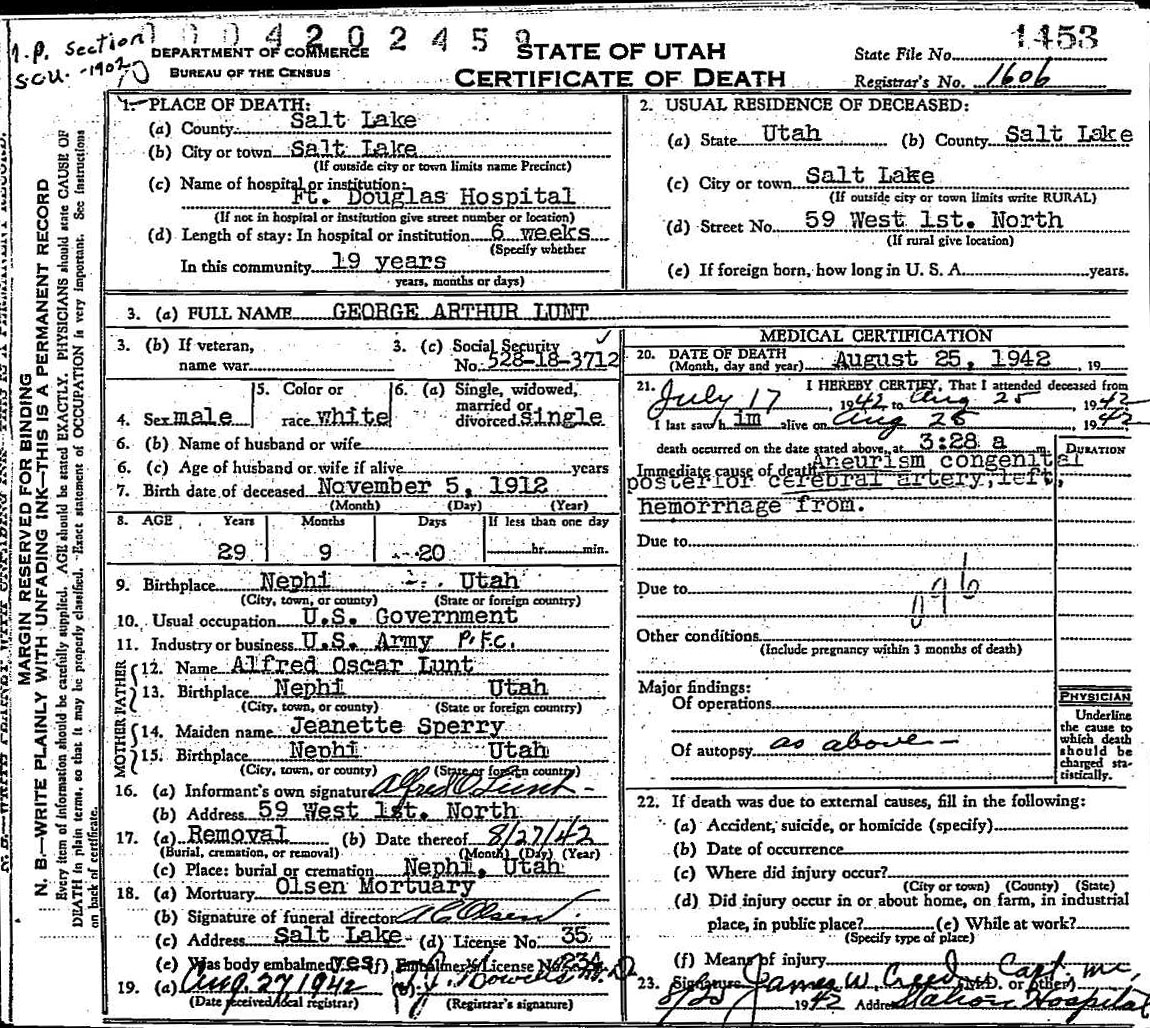 1.P. Section 0042024 5 9
S.C.U. -1902
DEPARTMENT OF COMMERCE
BUREAU OF THE CENSUS
STATE OF UTAH
CERTIFICATE OF DEATH
1453
State File No.
Registrar's No. 1606
MARGIN RESERVED FOR BINDING
N. B—WRITE PLAINLY WITH UNFADING INK—THIS IS A PERMANENT RECORD
Every item of information should be carefully supplied. AGE should be stated EXACTLY. PHYSICIANS should state CAUSE OF
DEATH in plain terms, so that it may be properly classified. Exact statement of OCCUPATION is very important. See instructions
on back of certificate.
1. PLACE OF DEATH:
(a) County Salt Lake
(b) City or town Salt Lake
(If outside city or town limits name Precinct)
(c) Name of hospital or institution:
Ft. Douglas Hospital
(If not in hospital or institution give street number or location)
(d) Length of stay: In hospital or institution 6 weeks
(Specify whether
In this community 19 years
years, months or days)
2. USUAL RESIDENCE OF DECEASED:
(a) State Utah (b) County Salt Lake
(c) City or town Salt Lake
(If outside city or town limits write RURAL)
(d) Street No. 59 West 1st. North
(If rural give location)
(e) If foreign born, how long in U. S. A. years.
3. (a) FULL NAME GEORGE ARTHUR LUNT
3. (b) If veteran,
name war
3. (c) Social Security
No. 528-18-3712
4. Sex male
5. Color or
race white
6. (a) Single, widowed,
married or
divorced single
6. (b) Name of husband or wife
6. (c) Age of husband or wife if alive years
7. Birth date of deceased November 5, 1912
(Month) (Day) (Year)
8. AGE Years Months Days If less than one day
29 9 20 hr. min.
9. Birthplace Nephi Utah
(City, town, or county) (State or foreign country)
10. Usual occupation U.S. Government
11. Industry or business U.S. Army P.F.C.
FATHER
12. Name Alfred Oscar Lunt
13. Birthplace Nephi Utah
(City, town, or county) (State or foreign country)
MOTHER
14. Maiden name Jeanette Sperry
15. Birthplace Nephi Utah
(City, town, or county) (State or foreign country)
16. (a) Informant's own signature Alfred O Lunt
(b) Address 59 West 1st. North
17. (a) Removal (b) Date thereof 8/27/42
(Burial, cremation, or removal) (Month) (Day) (Year)
(c) Place: burial or cremation Nephi, Utah
18. (a) Mortuary Olsen Mortuary
(b) Signature of funeral director A C Olsen
(c) Address Salt Lake (d) License No. 35
(e) Was body embalmed yes (f) Embalmer's License No. 234
19. (a) Aug. 27 1942 (b)
(Date received local registrar) (Registrar's signature)
MEDICAL CERTIFICATION
20. DATE OF DEATH
(Month, day and year) August 25, 1942, 19
21. I HEREBY CERTIFY, That I attended deceased from
July 17, 1942 to Aug 25, 1942
I last saw him alive on Aug 25, 1942
death occurred on the date stated above, at 3:28 a m.
DURATION
Immediate cause of death Aneurism congenital
posterior cerebral artery, left,
hemorrhage from.
Due to
Due to
096
Other conditions
(Include pregnancy within 3 months of death)
Major findings:
Of operations
Of autopsy as above -
PHYSICIAN
Underline
the cause to
which death
should be
charged sta-
tistically.
22. If death was due to external causes, fill in the following:
(a) Accident, suicide, or homicide (specify)
(b) Date of occurrence
(c) Where did injury occur?
(City or town) (County) (State)
(d) Did injury occur in or about home, on farm, in industrial
place, in public place? (e) While at work?
(Specify type of place)
(f) Means of injury
23. Signature James W. Creed Capt MC,
(M.D. or other)
8/25 1942 Address Station Hospital